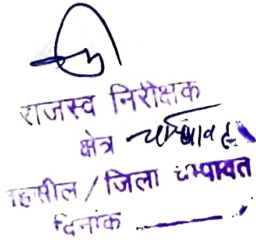 राजस्व निरीक्षक
क्षेत्र चम्पावत
तहसील / जिला चम्पावत
दिनांक